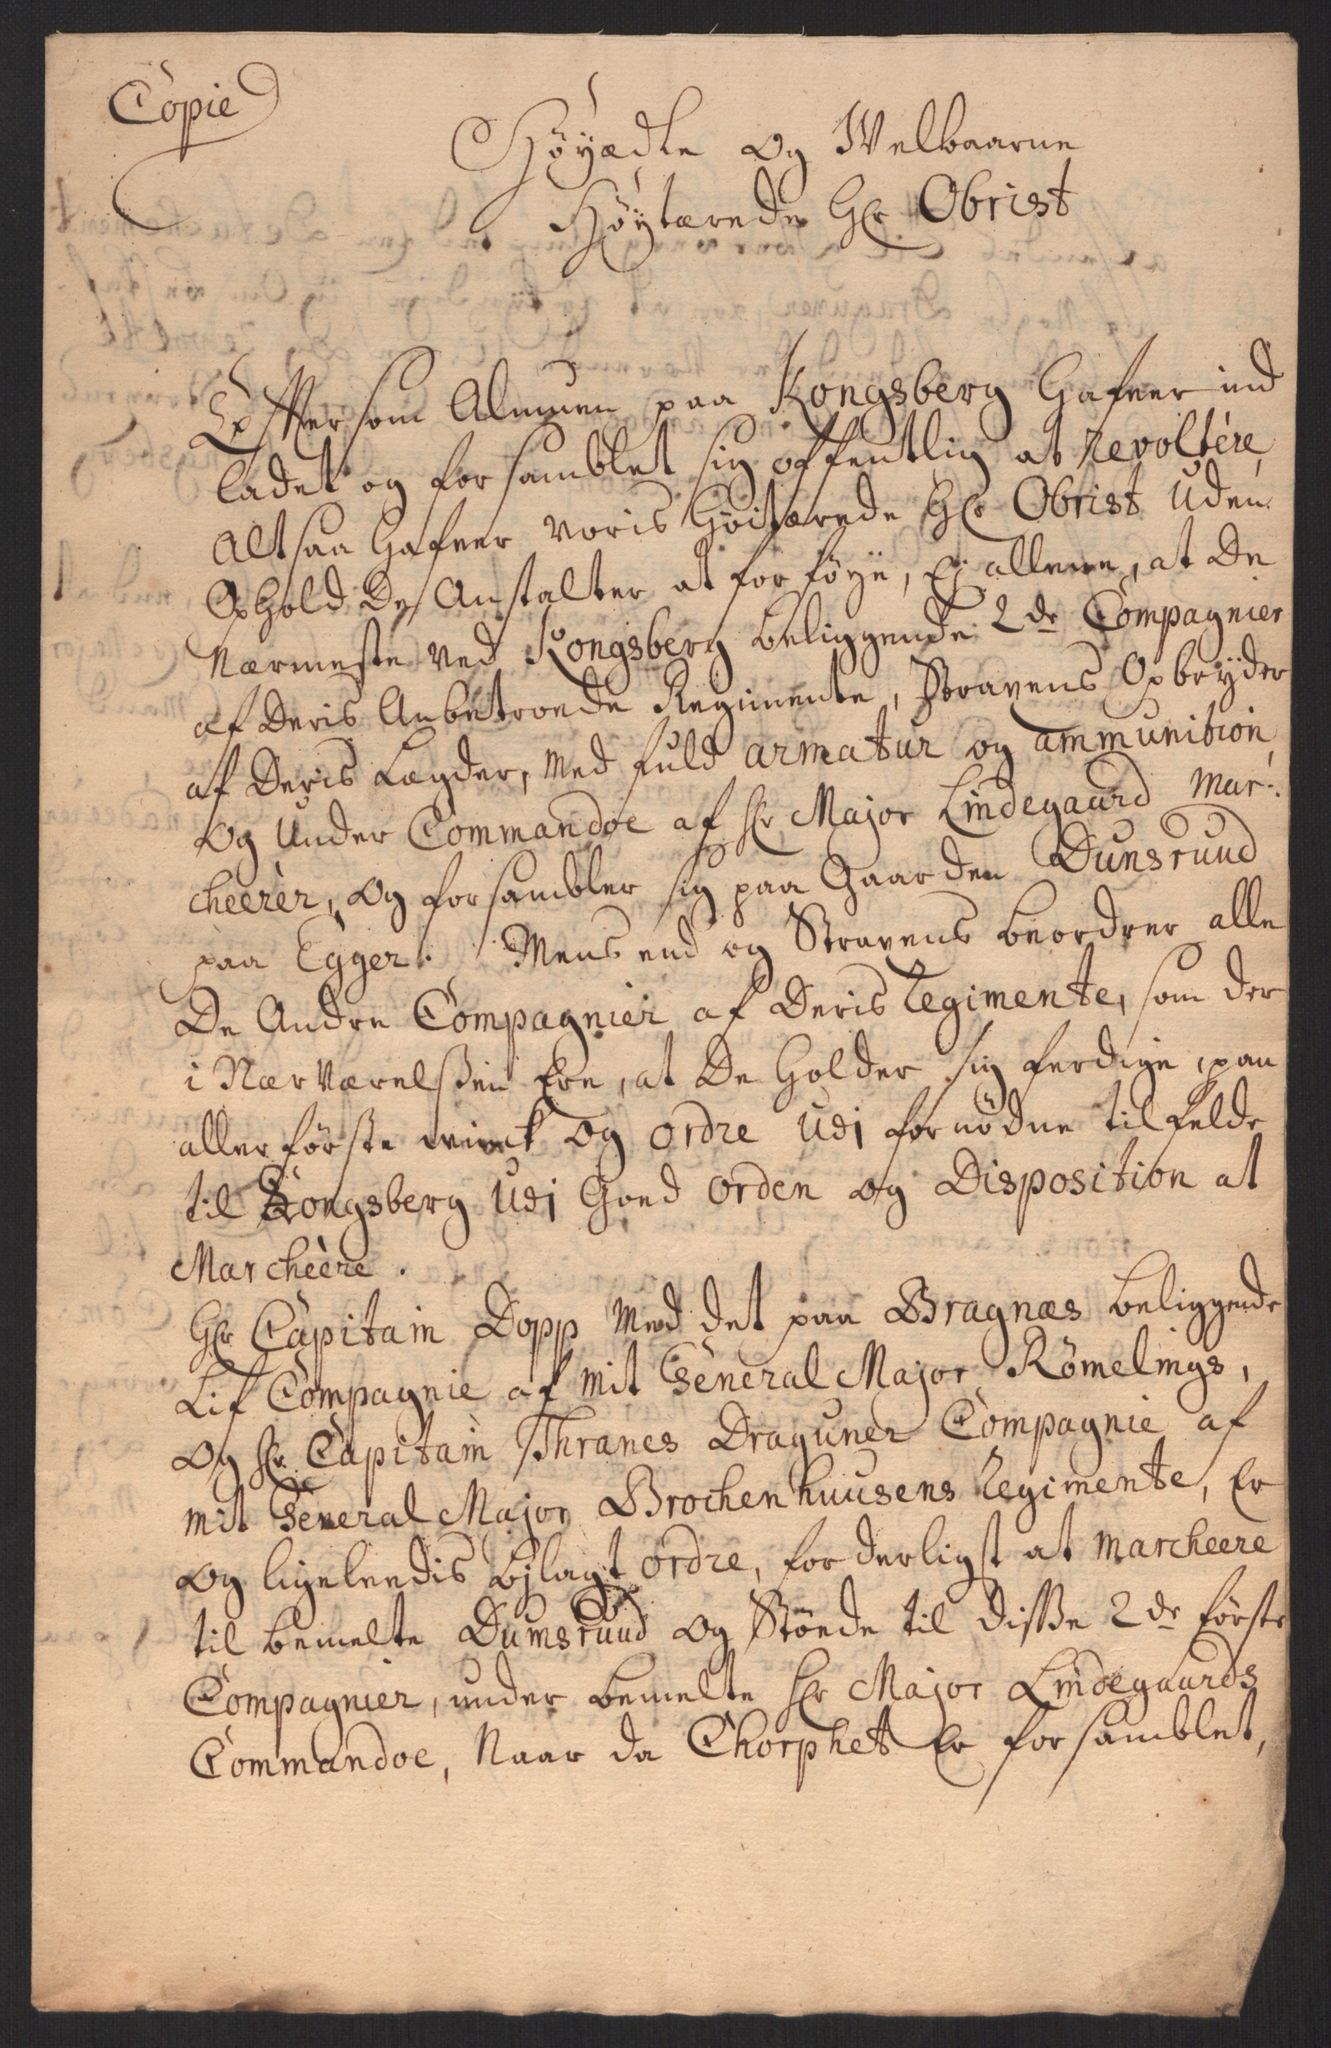 Copie
Høyædle og Welbaarne
Høytærede Hr Obrist
Effter som Almuen paa Kongsberg hafver ind
ladet og forsamblet sig offentlig at revoltére,
Altsaa hafver voris Høitærede Hr Obrist uden
Ophold De Anstalter at forføye, Ej allene, at De
Nærmeste ved Kongsberg beliggende 2de Compagnier
af Deris Anbetroede Regimente, Stravens Opbryder
af Deris Lægder, med fuld armatur og ammunition,
og under Commandoe af Hr Major Lindegaard Mar-
cheerer, og forsambler sig paa Gaarden Dunsruud
paa Egger. Mens end og Stravens beordrer alle
De Andre Compagnier af Deris Regimente, som der
i Nærværelsen Ere, at De holder sig ferdige, paa
aller første winck og ordre udj fornødne tilfelde
til Kongsberg udj Goed orden og Disposition at
Marcheere.
Hr Capitain Dopp med det paa Bragnæs beliggende
Lif Compagnie af mit General Major Rømelings,
og Hr Capitain Thranes Draguner Compagnie af
mit General Major Brochenhuusens Regimente, Er
og ligeleedis bylagt ordre, forderligst at marcheere
til bemelte Dumsruud og Støde til disse 2de første
Compagnier, under bemelte Hr Major Lindegaards
Commandoe, Naar da Chorphet Er forsamblet,